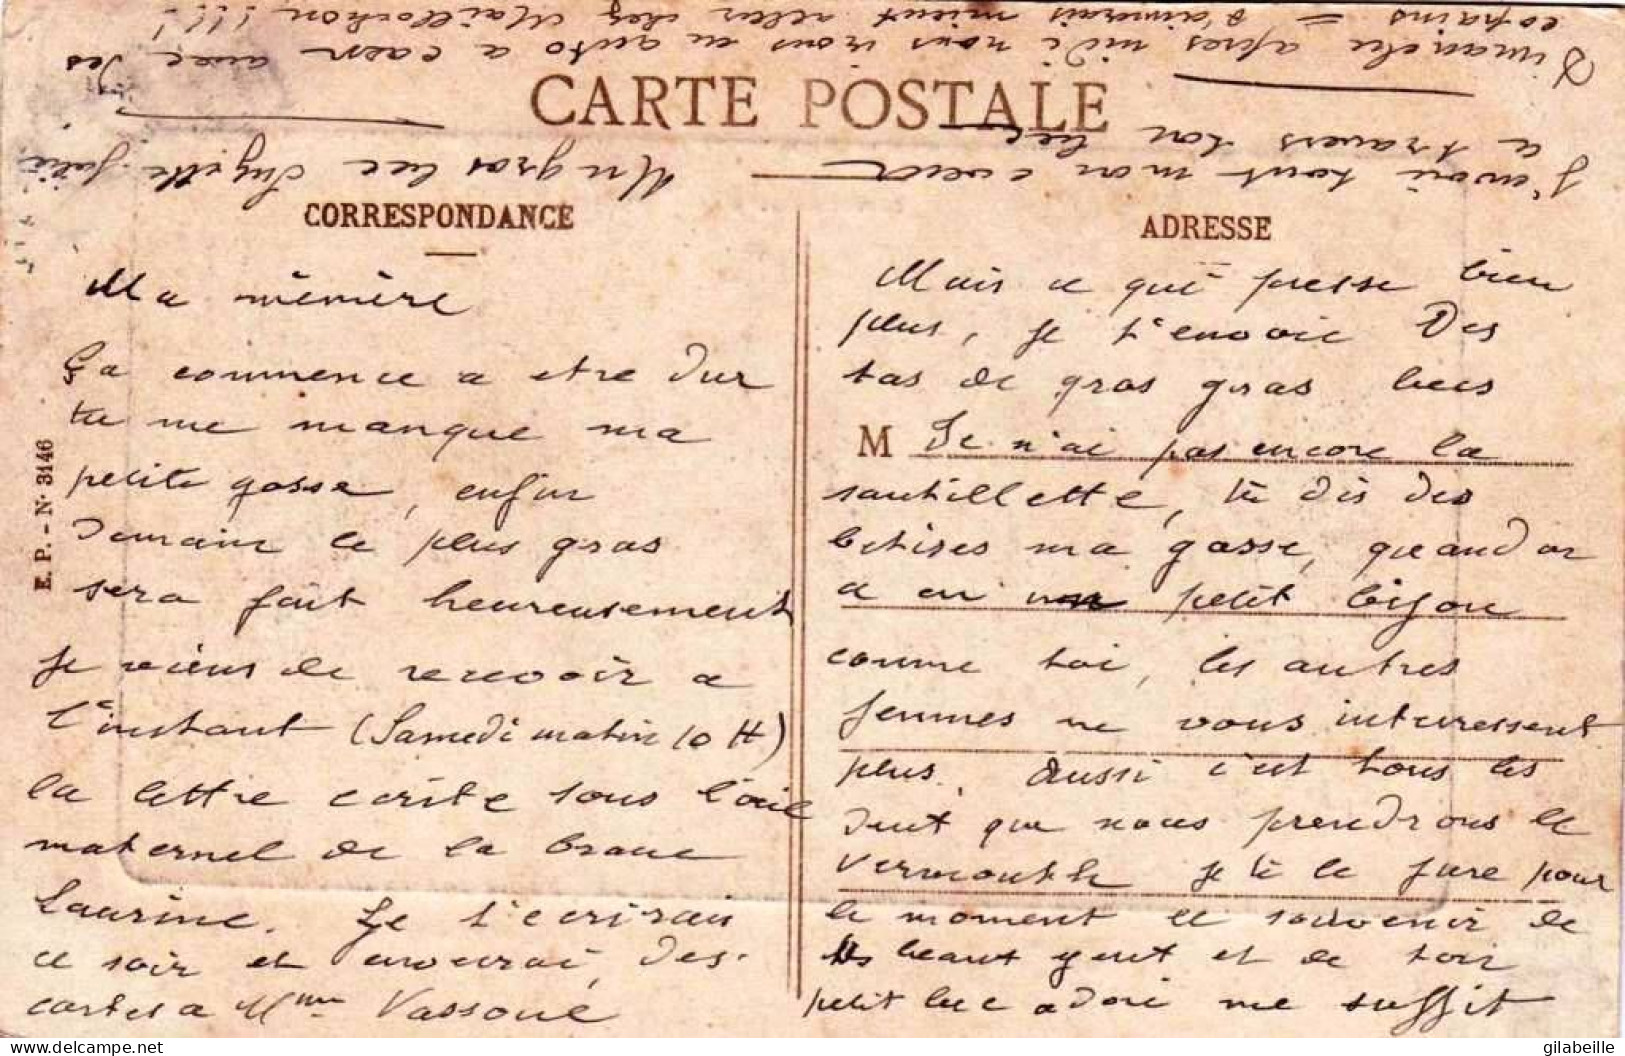 CARTE POSTALE
CORRESPONDANCE
Ma mémère
Ça commence a etre dur
tu me manque ma
petite gosse, enfin
demain le plus gros
sera fait heureusement
Je viens de recevoir a
l'instant (Samedi matin 10 H)
la lettre ecrite sous l'oeil
maternel de la brave
Laurine. Je t'ecrirais
ce soir et enverrai des
cartes a Mme Vassoul
ADRESSE
Mais ce qui presse bien
plus, je t'envoie Des
tas de gros gros becs
M Je n'ai pas encore la
sautillette, tu dis des
betises ma gosse, quand on
a un petit bijou
comme toi, les autres
femmes ne vous interessent
plus. Aussi c'est tous les
deux que nous prendrons le
Vermouth je te le jure pour
le moment le souvenir de
tes beaux yeux et de ton
petit bec adoré me suffit
J'envoi tout mon coeur
a travers ton bec
Un gros bec Suzette Julie
Dimanche apres midi nous irons en auto a caen avec des
copains = J'aimerais mieux aller chez Maillochon !!!!
E. P. - N° 3146
gilabeille